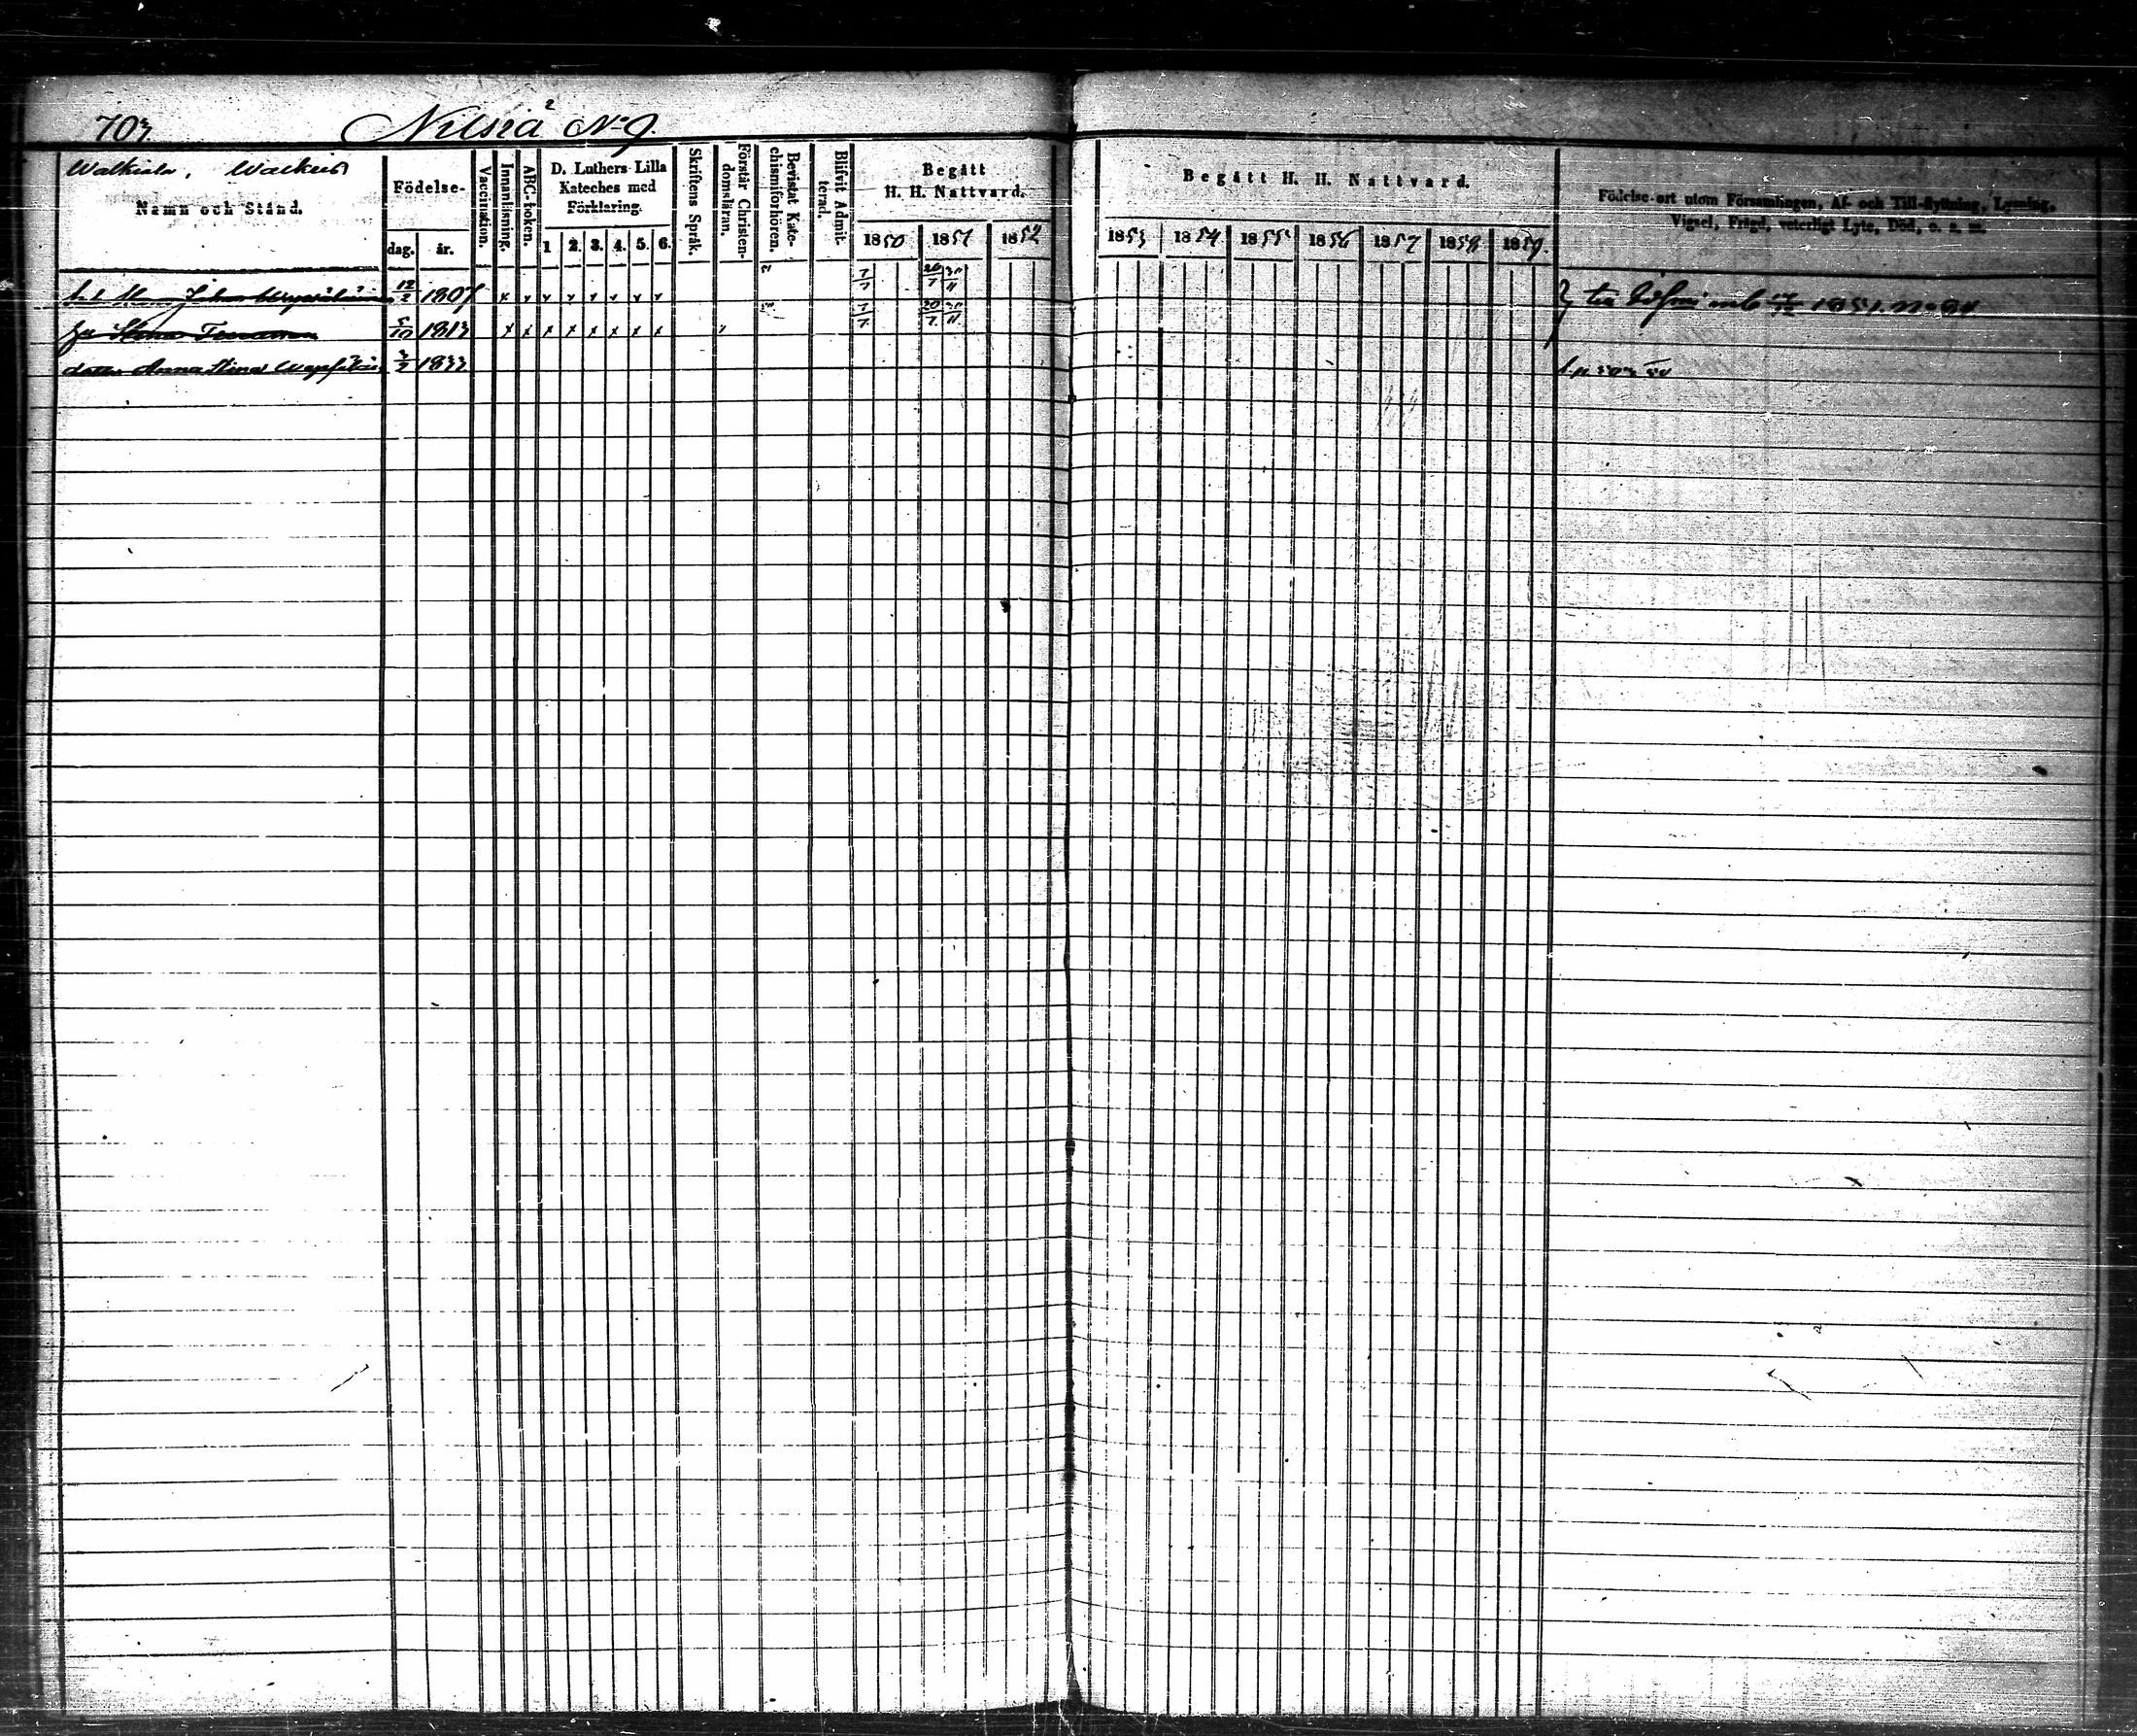 703. Nilsiä No 9.
Walkiala, Wackeis
Namn och Stånd.
Födelse-
dag. år.
Vaccination.
Innanläsning.
ABC-boken.
D. Luthers Lilla
Kateches med
Förklaring.
1 2. 3. 4. 5. 6.
Skriftens Språk.
Förstår Christen-
domsläran.
Bevistat Kate-
chismiförhören.
Blifvit Admit-
terad.
Begått
H. H. Nattvard.
1850 1851 1852
Begått H. H. Nattvard.
1853 1854 1855 1856 1857 1858 1859.
Födelse-ort utom Församlingen, Af- och Till-flyttning, Lysning,
Vigsel, Frägd, veterligt Lyte, Död, o. s. m.
Johan 12/2 1807 x x x x x x x x 7/7 20/7 30/11 1851. No 94
Stina 5/10 1813 x x x x x x x x 7/7 20/7 30/11
dotter Anna Stina 3/7 1833